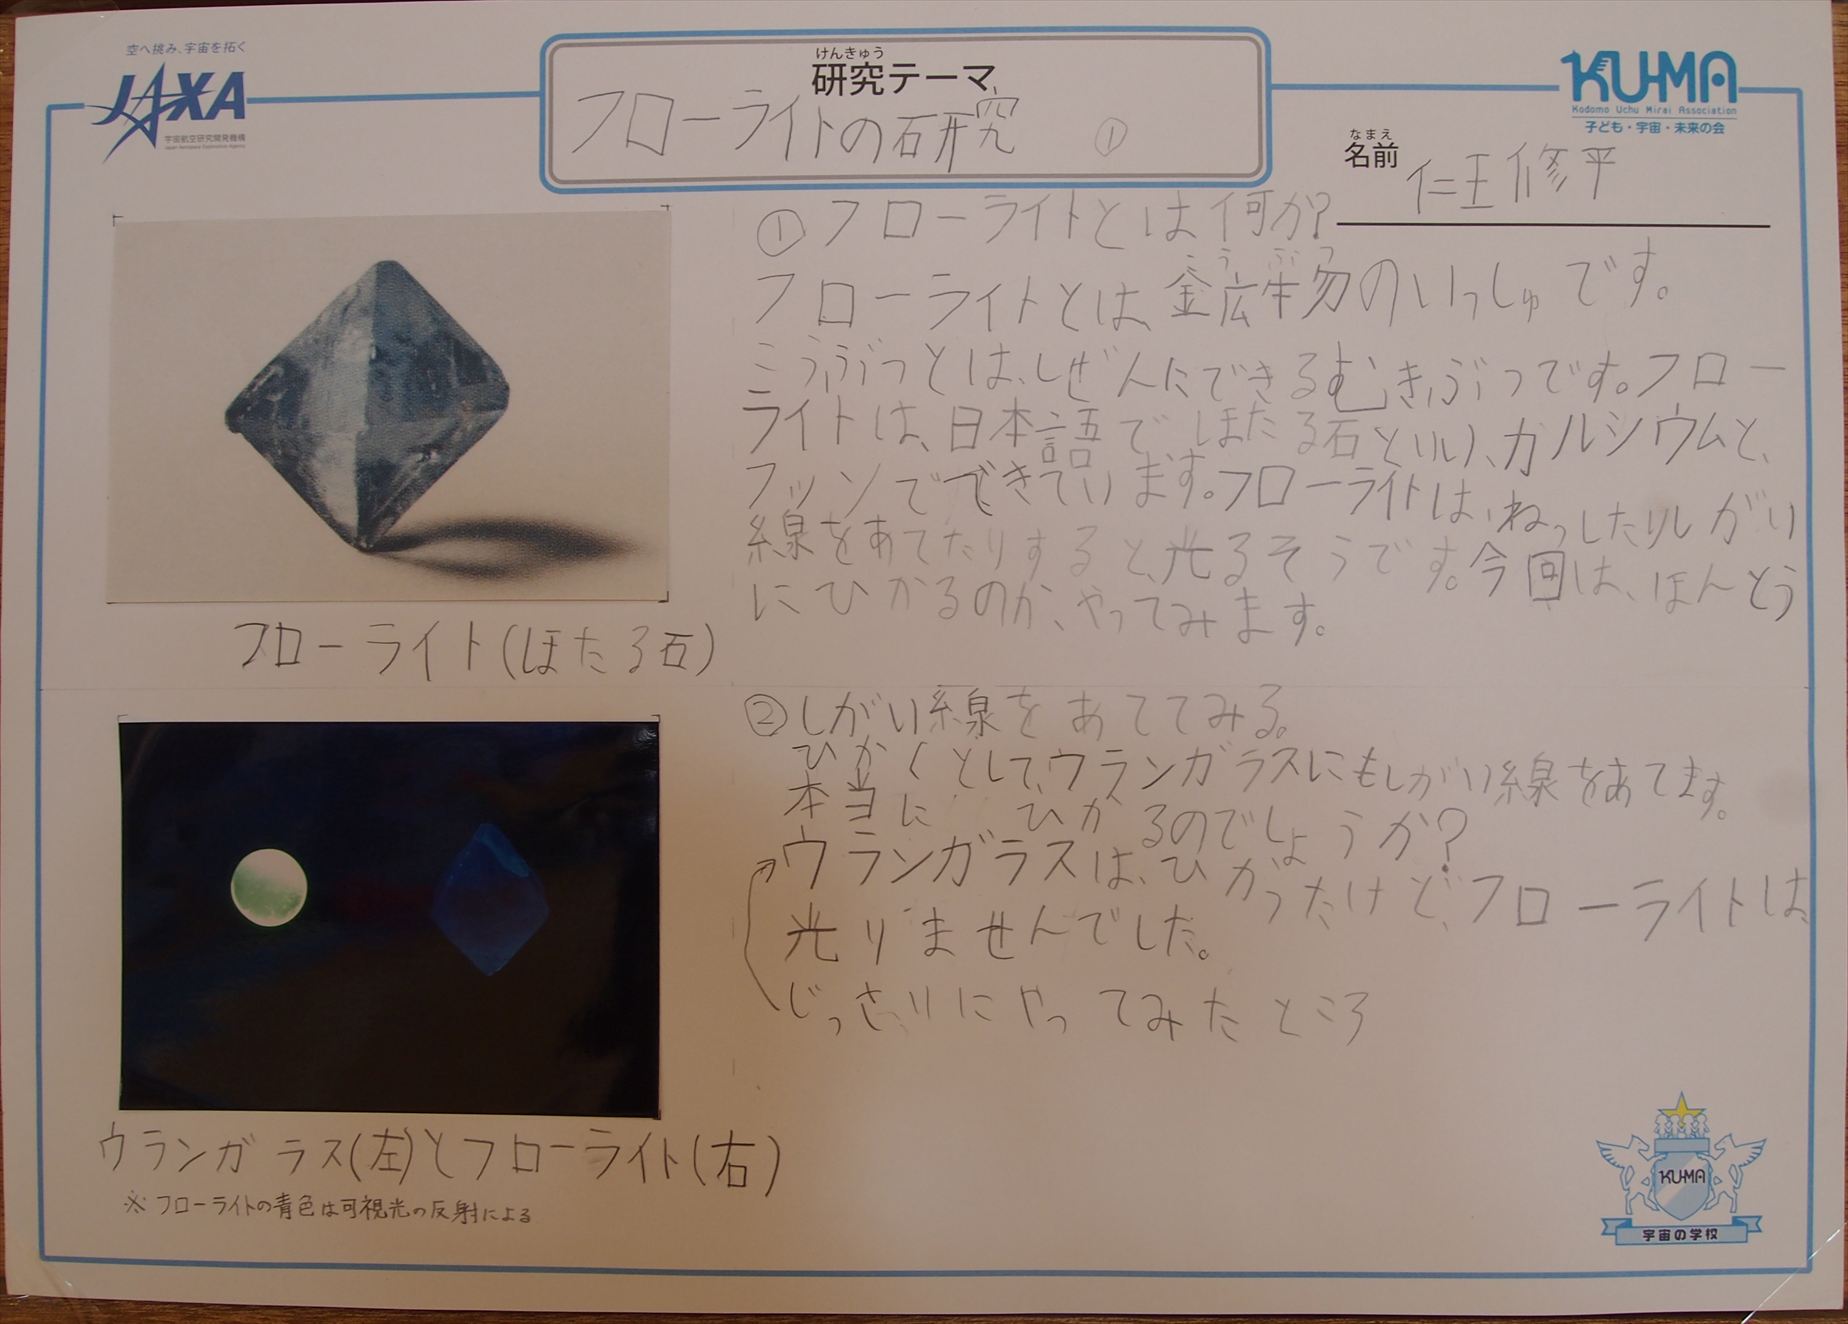 空へ挑み、宇宙を拓く
JAXA
宇宙航空研究開発機構
Japan Aerospace Exploration Agency
けんきゅう
研究テーマ
フローライトの研究 ①
KU-MA
Kodomo Uchu Mirai Association
子ども・宇宙・未来の会
なまえ
名前 仁王修平
①フローライトとは何か?
こうぶつ
フローライトとは、鉱物のいっしゅです。
こうぶつとは、しぜんにできるむきぶつです。フロー
ライトは、日本語で、ほたる石といい、カルシウムと、
フッソでできています。フローライトは、ねっしたりしがい
線をあてたりすると、光るそうです。今回は、ほんとう
にひかるのか、やってみます。
フローライト(ほたる石)
②しがい線をあててみる。
ひかくとして、ウランガラスにもしがい線をあてます。
本当にひかるのでしょうか?
ウランガラスは、ひかったけど、フローライトは、
光りませんでした。
じっさいにやってみたところ
ウランガラス(左)とフローライト(右)
※フローライトの青色は可視光の反射による
KU-MA
宇宙の学校